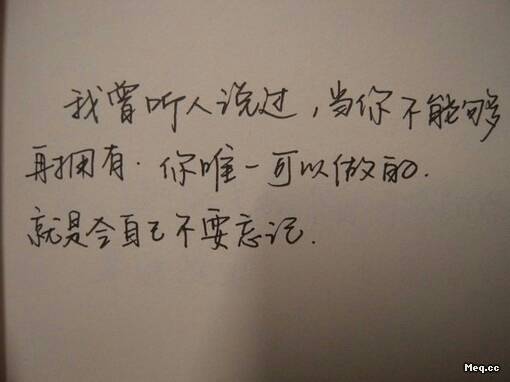 我曾听人说过，当你不能够
再拥有．你唯一可以做的．
就是令自己不要忘记．
Meq.cc